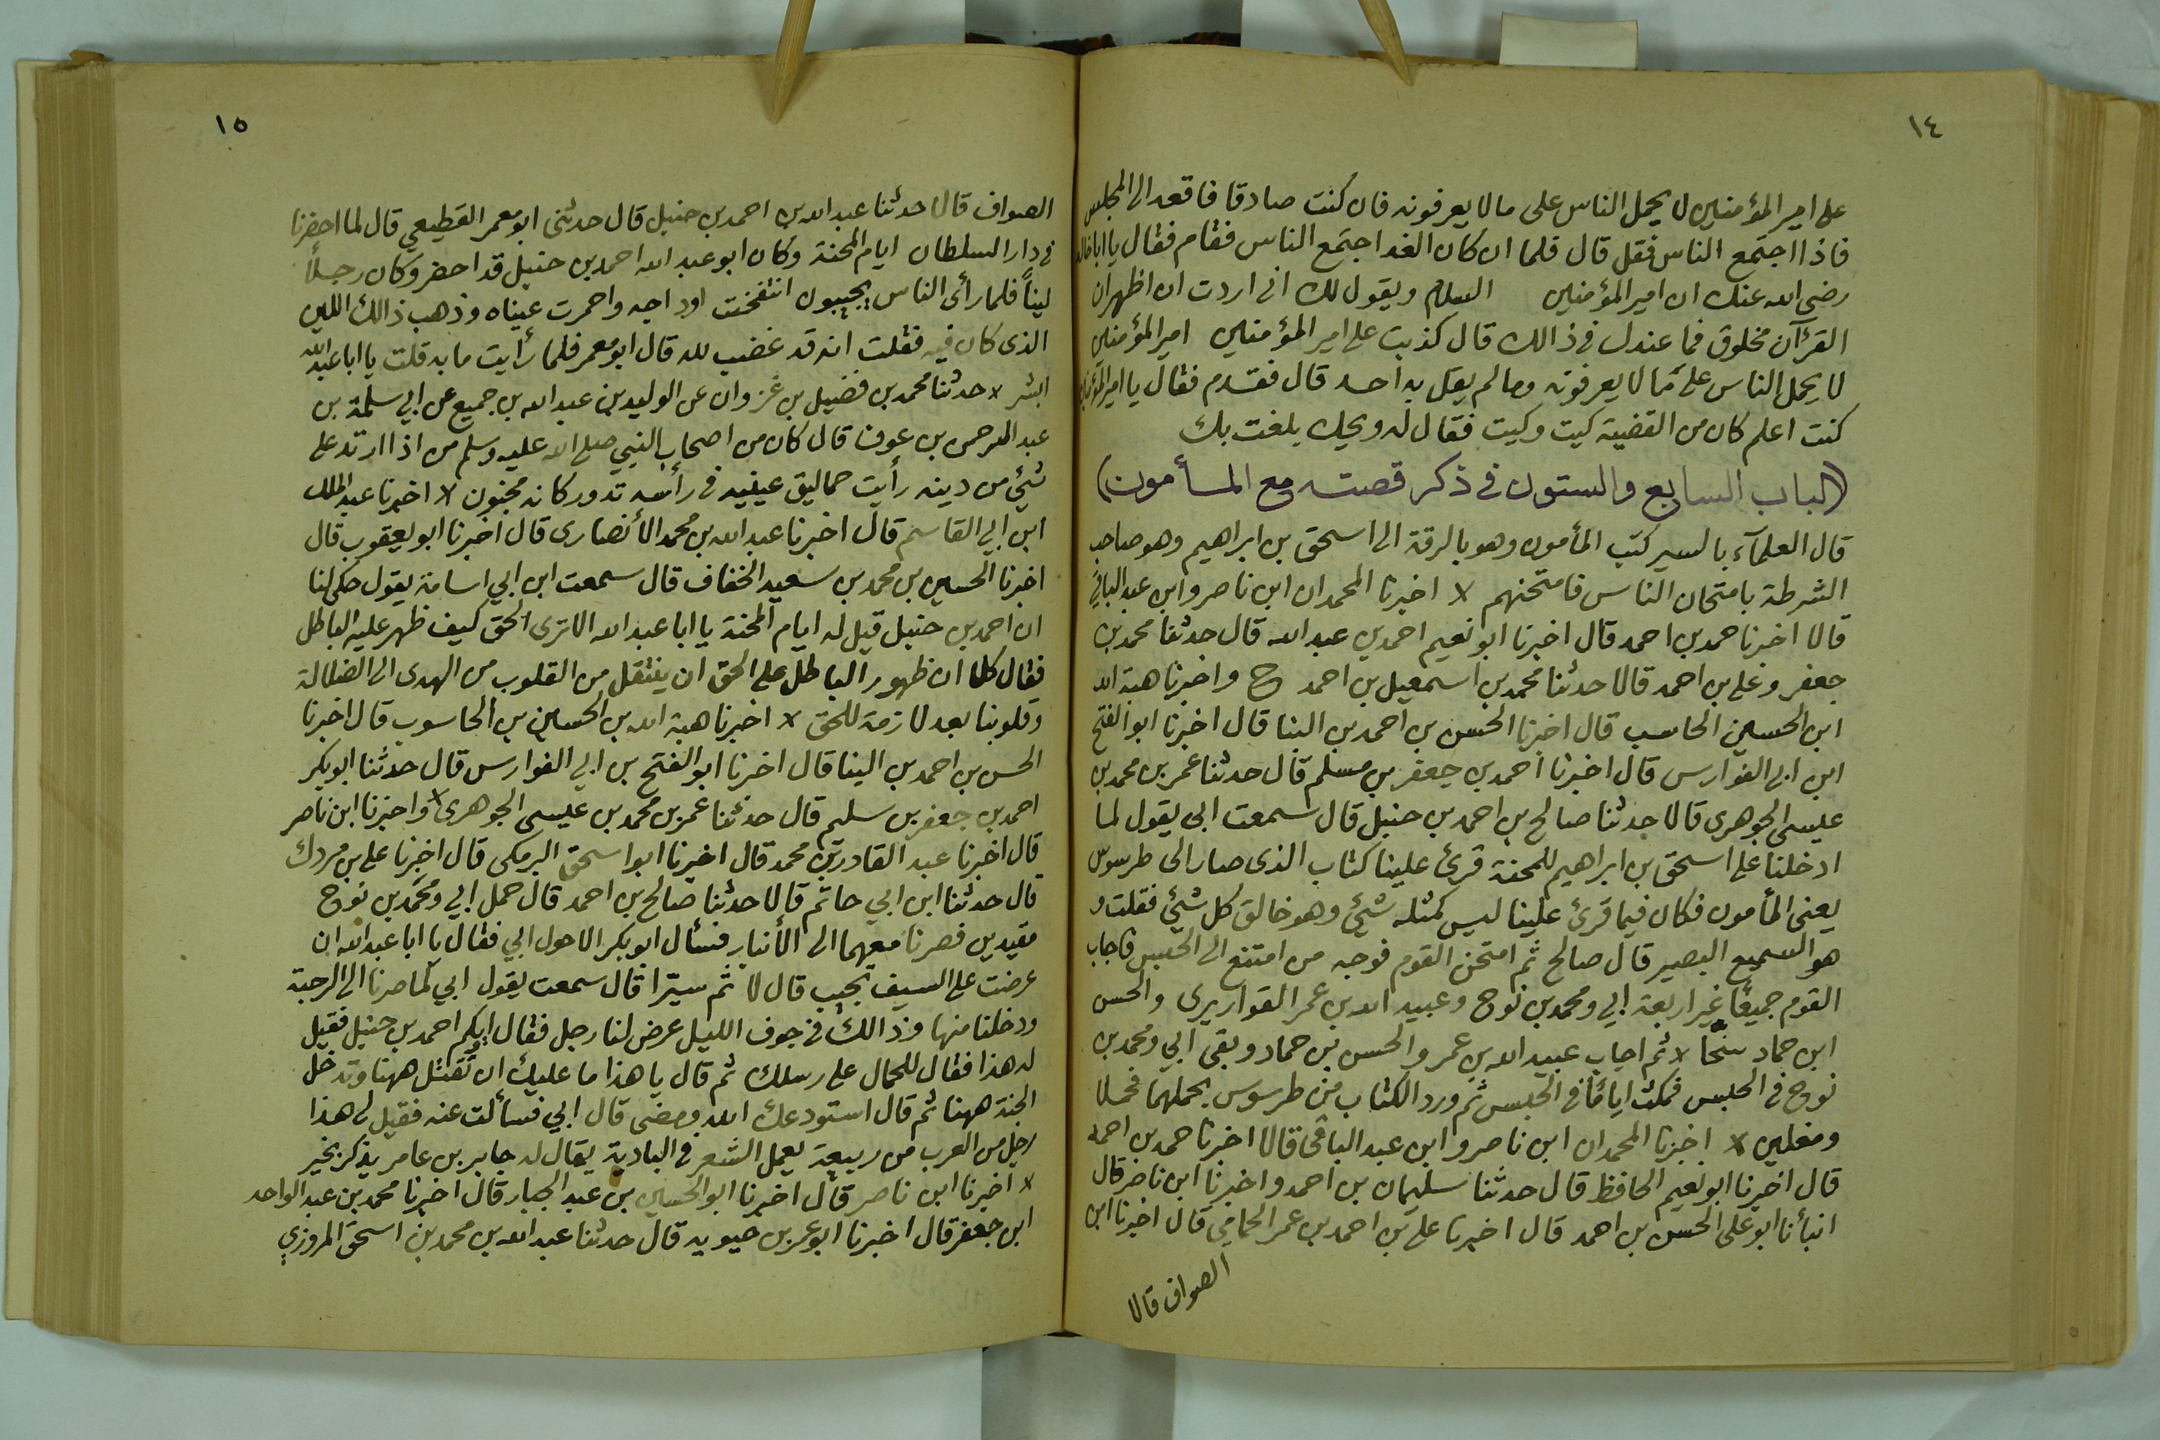 ١٤
على امير المؤمنين لا يحمل الناس على مالا يعرفونه فان كنت صادقا فاقعد الى المجلس
فاذا اجتمع الناس فقل قال فلما ان كان الغد اجتمع الناس فقام فقال يا ابا خالد
رضى الله عنك ان امير المؤمنين السلام ويقول لك انى اردت ان اظهر ان
القرآن مخلوق فما عندك فى ذالك قال كذبت على امير المؤمنين امير المؤمنين
لا يحمل الناس على مالا يعرفونه ومالم يقل به احد قال فقدم فقال يا امير المؤمنين
كنت اعلم كان من القضية كيت وكيت فقال له ويحك بلغت بك
(الباب السابع والستون فى ذكر قصته مع المأمون)
قال العلمآء بالسير كتب المأمون وهو بالرقة الى اسحق بن ابراهيم وهو صاحب
الشرطة بامتحان الناس فامتحنهم لا اخبرنا المحمدان ابن ناصر وابن عبد الباقي
قالا اخبرنا حمد بن احمد قال اخبرنا ابو نعيم احمد بن عبد الله قال حدثنا محمد بن
جعفر وعلى بن احمد قالا حدثنا محمد بن اسمعيل بن احمد ح واخبرنا هبة الله
ابن الحسين الحاسب قال اخبرنا الحسن بن احمد بن البنا قال اخبرنا ابو الفتح
ابن ابى الفوارس قال اخبرنا احمد بن جعفر بن مسلم قال حدثنا عمر بن محمد بن
عيسى الجوهرى قالا حدثنا صالح بن احمد بن حنبل قال سمعت ابى يقول لما
ادخلنا على اسحق بن ابراهيم للمحنة قرئ علينا كتاب الذى صار الى طرسوس
يعنى المأمون فكان فيما قرئ علينا ليس كمثله شئ وهو خالق كل شئ فقلت و
هو السميع البصير قال صالح ثم امتحن القوم فوجه من امتنع الى الحبس فاجاب
القوم جميعًا غير اربعة ابي ومحمد بن نوح وعبيد الله بن عمر القواريرى والحسن
ابن حماد لا ثم اجاب عبيد الله بن عمر والحسن بن حماد وبقى ابي ومحمد بن
نوح فى الحبس فمكث ايامًا فى الحبس ثم ورد الكتاب من طرسوس بحملهما فحملا
ومغلين لا اخبرنا المحمدان ابن ناصر وابن عبد الباقى قالا اخبرنا حمد بن احمد
قال اخبرنا ابو نعيم الحافظ قال حدثنا سليمان بن احمد واخبرنا ابن ناصر قال
انبأنا ابو على الحسن بن احمد قال اخبرنا على بن احمد بن عمر الحمامي قال اخبرنا ابن
الصواف قالا
١٥
الصواف قالا حدثنا عبد الله بن احمد بن حنبل قال حدثنى ابو معمر القطيعي قال لما احضرنا
فى دار السلطان ايام المحنة وكان ابو عبد الله احمد بن حنبل قد احضر وكان رجلاً
لينًا فلما رأى الناس يجيبون انتفخت اوداجه واحمرت عيناه وذهب ذالك اللين
الذى كان فيه فقلت انه قد غضب لله قال ابو معمر فلما رأيت ما به قلت يا ابا عبد الله
ابشر لا حدثنا محمد بن فضيل بن غزوان عن الوليد بن عبد الله بن جميع عن ابي سلمة بن
عبد الرحمن بن عوف قال كان من اصحاب النبي صلى الله عليه وسلم من اذا ارتد على
شئ من دينه رأيت حماليق عينيه فى رأسه تدور كانه مجنون لا اخبرنا عبد الملك
ابن ابي القاسم قال اخبرنا عبد الله بن محمد الأنصارى قال اخبرنا ابو يعقوب قال
اخبرنا الحسين بن محمد بن سعيد الخفاف قال سمعت ابن ابي اسامة يقول حكى لنا
ان احمد بن حنبل قيل له ايام المحنة يا ابا عبد الله الا ترى الحق كيف ظهر عليه الباطل
فقال كلا ان ظهور الباطل على الحق ان ينتقل من القلوب من الهدى الى الضلالة
وقلوبنا بعد لازمة للحق لا اخبرنا هبة الله بن الحسين بن الحاسوب قال اخبرنا
الحسن بن احمد بن البنا قال اخبرنا ابو الفتح بن ابي الفوارس قال حدثنا ابو بكر
احمد بن جعفر بن سليم قال حدثنا عمر بن محمد بن عيسى الجوهرى لا واخبرنا ابن ناصر
قال اخبرنا عبد القادر بن محمد قال اخبرنا ابو اسحق البرمكى قال اخبرنا على بن مردك
قال حدثنا ابن ابي حاتم قالا حدثنا صالح بن احمد قال حمل ابي ومحمد بن نوح
مقيدين فصرنا معهما الى الأنبار فسأل ابو بكر الاحول ابي فقال يا ابا عبد الله ان
عرضت على السيف تجيب قال لا ثم سيّرا قال سمعت يقول ابي لما صرنا الى الرحبة
ودخلنا منها وذالك فى جوف الليل عرض لنا رجل فقال ايكم احمد بن حنبل فقيل
له هذا فقال للجمال على رسلك ثم قال يا هذا ما عليك ان تُقتل ههنا وتدخل
الجنة ههنا ثم قال استودعك الله ومضى قال ابي فسألت عنه فقيل لى هذا
رجل من العرب من ربيعة يعمل الشعر فى البادية يقال له جابر بن عامر يذكر بخير
لا اخبرنا ابن ناصر قال اخبرنا ابو الحسين بن عبد الجبار قال اخبرنا محمد بن عبد الواحد
ابن جعفر قال اخبرنا ابو عمر بن حيويه قال حدثنا عبد الله بن محمد بن اسحق المروزي